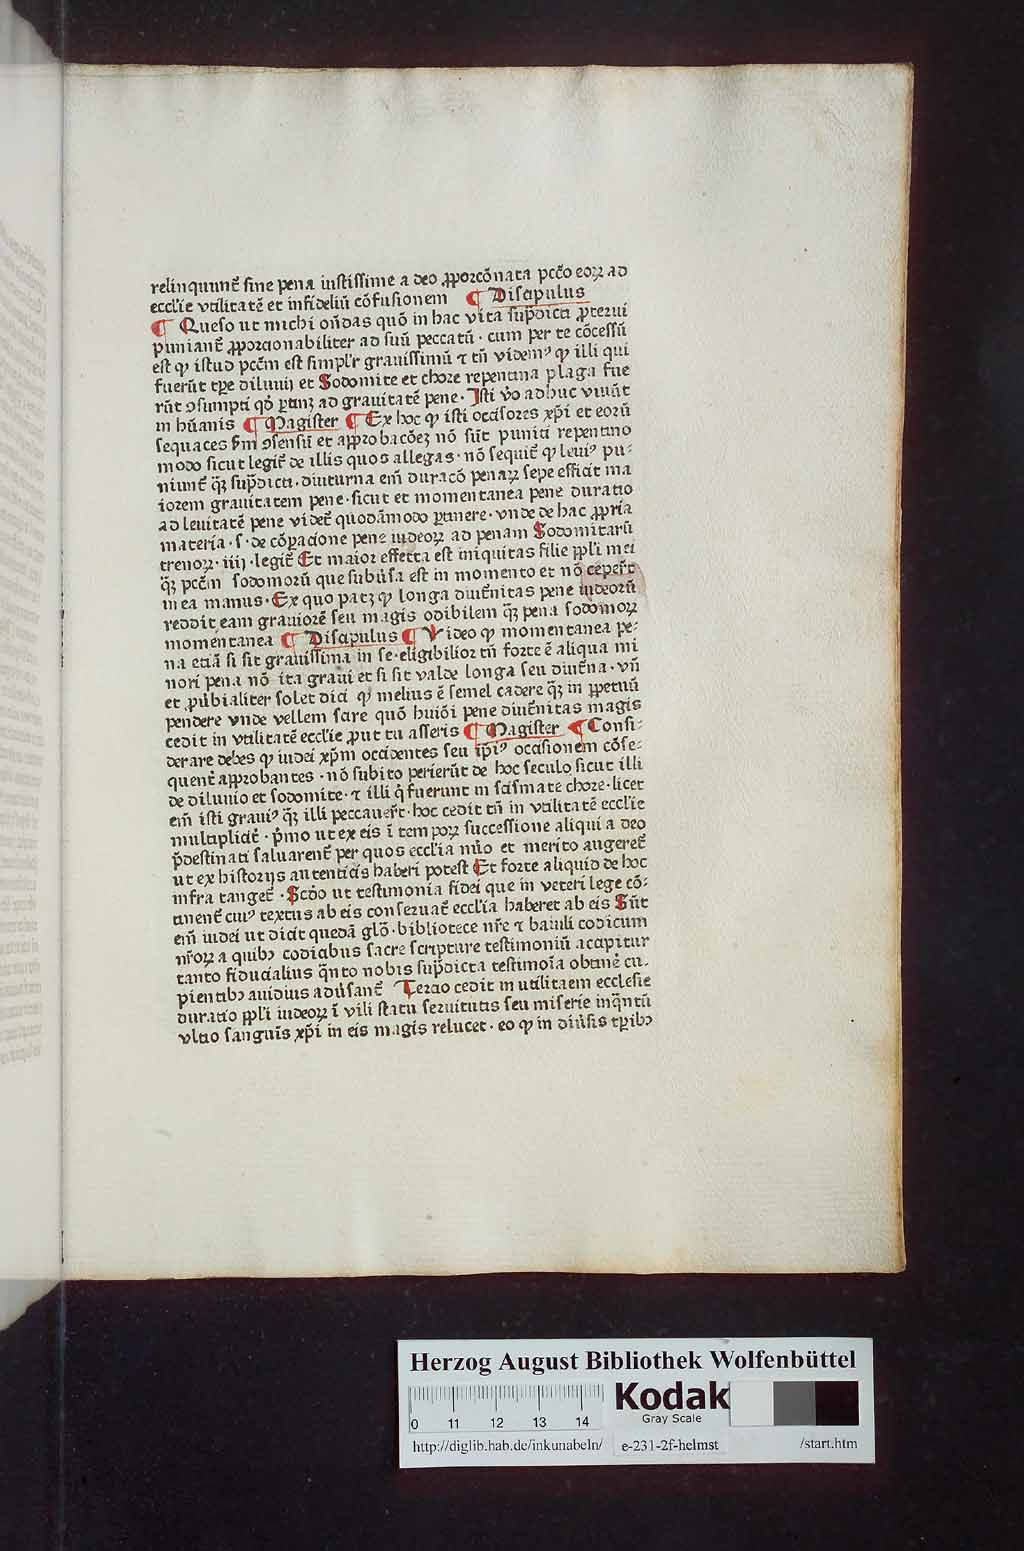 relinquunt᷑ sine pena iustissime a deo ꝓporcōnata pccō eoꝝ ad
eccl'ie vtilitatē et infideliū cōfusionem ¶ Discipulus
¶ Queso ut michi oñdas quō in hac vita sup̄dicti ꝓterui
puniant᷑ ꝓporcionabiliter ad suū peccatū · cum per te cōcessū
est ꝙ istud pcc̄m est simpl'r grauissimū ⁊ tn̄ videmꝰ ꝙ illi qui
fuerūt tꝑe diluuij et Sodomite et chore repentina plaga fue
rūt ꝯsumpti qđ ꝑtinꝫ ad grauitatē pene · Isti v̊o adhuc viuūt
in hūanis ¶ Magister ¶ Ex hoc ꝙ isti occisores xp̄i et eorū
sequaces s̄m ꝯsensū et approbacōeꝫ nō sūt puniti repentino
modo sicut legit᷑ de illis quos allegas · nō sequit᷑ ꝙ leuiꝰ pu-
niunt᷑ qͣꝫ sup̄dicti · diuturna em̄ duracō penaꝝ sepe efficit ma
iorem grauitatem pene · sicut et momentanea pene duratio
ad leuitatē pene videt᷑ quodāmodo ꝑtinere · vnde de hac ꝓpria
materia · s · de cōꝑacione pene iudeoꝝ ad penam Sodomitarū
trenoꝝ · iiij · legit᷑ Et maior effecta est iniquitas filie ppl'i mei
qͣꝫ pcc̄m sodomorū que subūsa est in momento et nō ceper̄t
in ea manus · Ex quo patꝫ ꝙ longa diut᷑nitas pene iudeorū
reddit eam grauiorē seu magis odibilem qͣꝫ pena sodomoꝝ
momentanea ¶ Discipulus ¶ Video ꝙ momentanea pe-
na etiā si sit grauissima in se · eligibilior tn̄ forte ē aliqua mi
nori pena nō ita graui et si sit valde longa seu diut᷑na · vn̄
et ꝓubialiter solet dici ꝙ melius ē semel cadere qͣꝫ in ꝑpetuū
pendere vnde vellem scire quō huiōi pene diut᷑nitas magis
cedit in vtilitatē eccl'ie ꝓut tu asseris ¶ Magister ¶ Consi-
derare debes ꝙ iudei xp̄m occidentes seu ip̄iꝰ occisionem cōse-
quent᷑ approbantes · nō subito perierūt de hoc seculo sicut illi
de diluuio et sodomite · ⁊ illi q̇ fuerunt in scismate chore · licet
em̄ isti grauiꝰ qͣꝫ illi peccauer̄t · hoc cedit tn̄ in vtilitatē eccl'ie
multiplicit᷑ · p̄mo ut ex eis ī tempoꝝ successione aliqui a deo
p̄destinati saluarent᷑ per quos eccl'ia nūo et merito augeret᷑
ut ex historijs autenticis haberi potest Et forte aliquid de hoc
infra tanget᷑ · Scđo ut testimonia fidei que in veteri lege cō-
tinent᷑ cuiꝰ textus ab eis conseruat᷑ eccl'ia haberet ab eis Sūt
em̄ iudei ut dicit quedā glō · bibliotece nr̄e ⁊ baiuli codicum
nr̄oꝝ a quibꝫ codicibus sacre scripture testimoniū accipitur
tanto fiducialius qͣnto nobis sup̄dicta testimoīa obtinē cu-
pientibꝫ auidius adūsant᷑ Tercio cedit in utilitaem ecclesie
duratio ppl'i iudeoꝝ ī vili statu seruitutis seu miserie inqͣntū
vltio sanguīs xp̄i in eis magis relucet · eo ꝙ in diūsis tꝑibꝫ
Herzog August Bibliothek Wolfenbüttel
0 11 12 13 14
Kodak
Gray Scale
http://diglib.hab.de/inkunabeln/ e-231-2f-helmst /start.htm